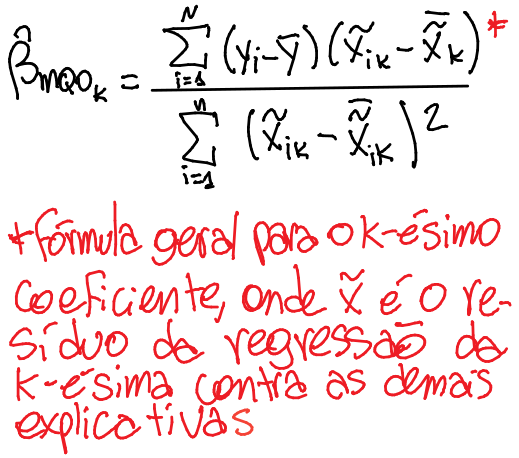 β̂_MQO_k = \frac{\sum_{i=1}^{N} (y_i - \bar{y})(\tilde{x}_{ik} - \bar{\tilde{x}}_k)}{\sum_{i=1}^{n} (\tilde{x}_{ik} - \bar{\tilde{x}}_{ik})^2} *
*fórmula geral para o k-ésimo
coeficiente, onde x̃ é o re-
síduo da regressão da
k-ésima contra as demais
explicativas